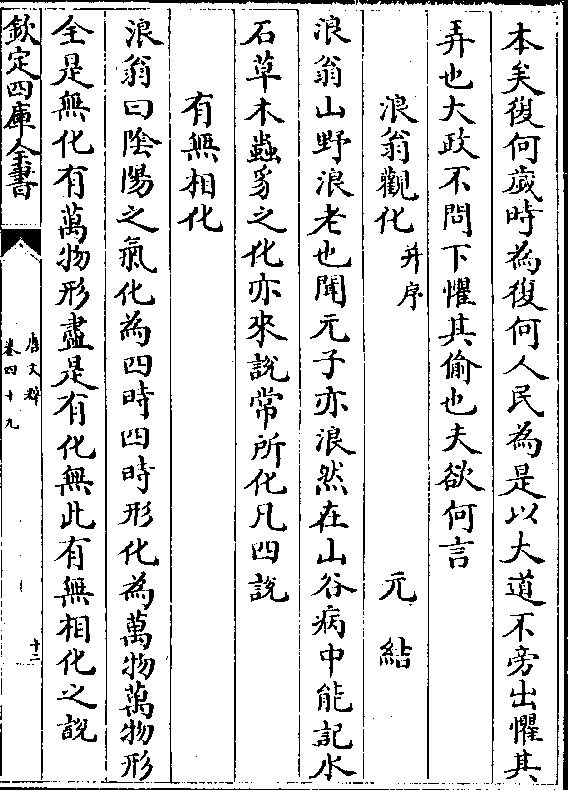 本矣復何歲時為復何人民為是以大道不旁出懼其
弄也大政不問下懼其偷也夫欲何言
浪翁觀化并序 元結
浪翁山野浪老也聞元子亦浪然在山谷病中能記水
石草木蟲豸之化亦來說常所化凡四說
有無相化
浪翁曰陰陽之氣化為四時四時形化為萬物萬物形
全是無化有萬物形盡是有化無此有無相化之說
欽定四庫全書
唐文粹
卷四十九
十二